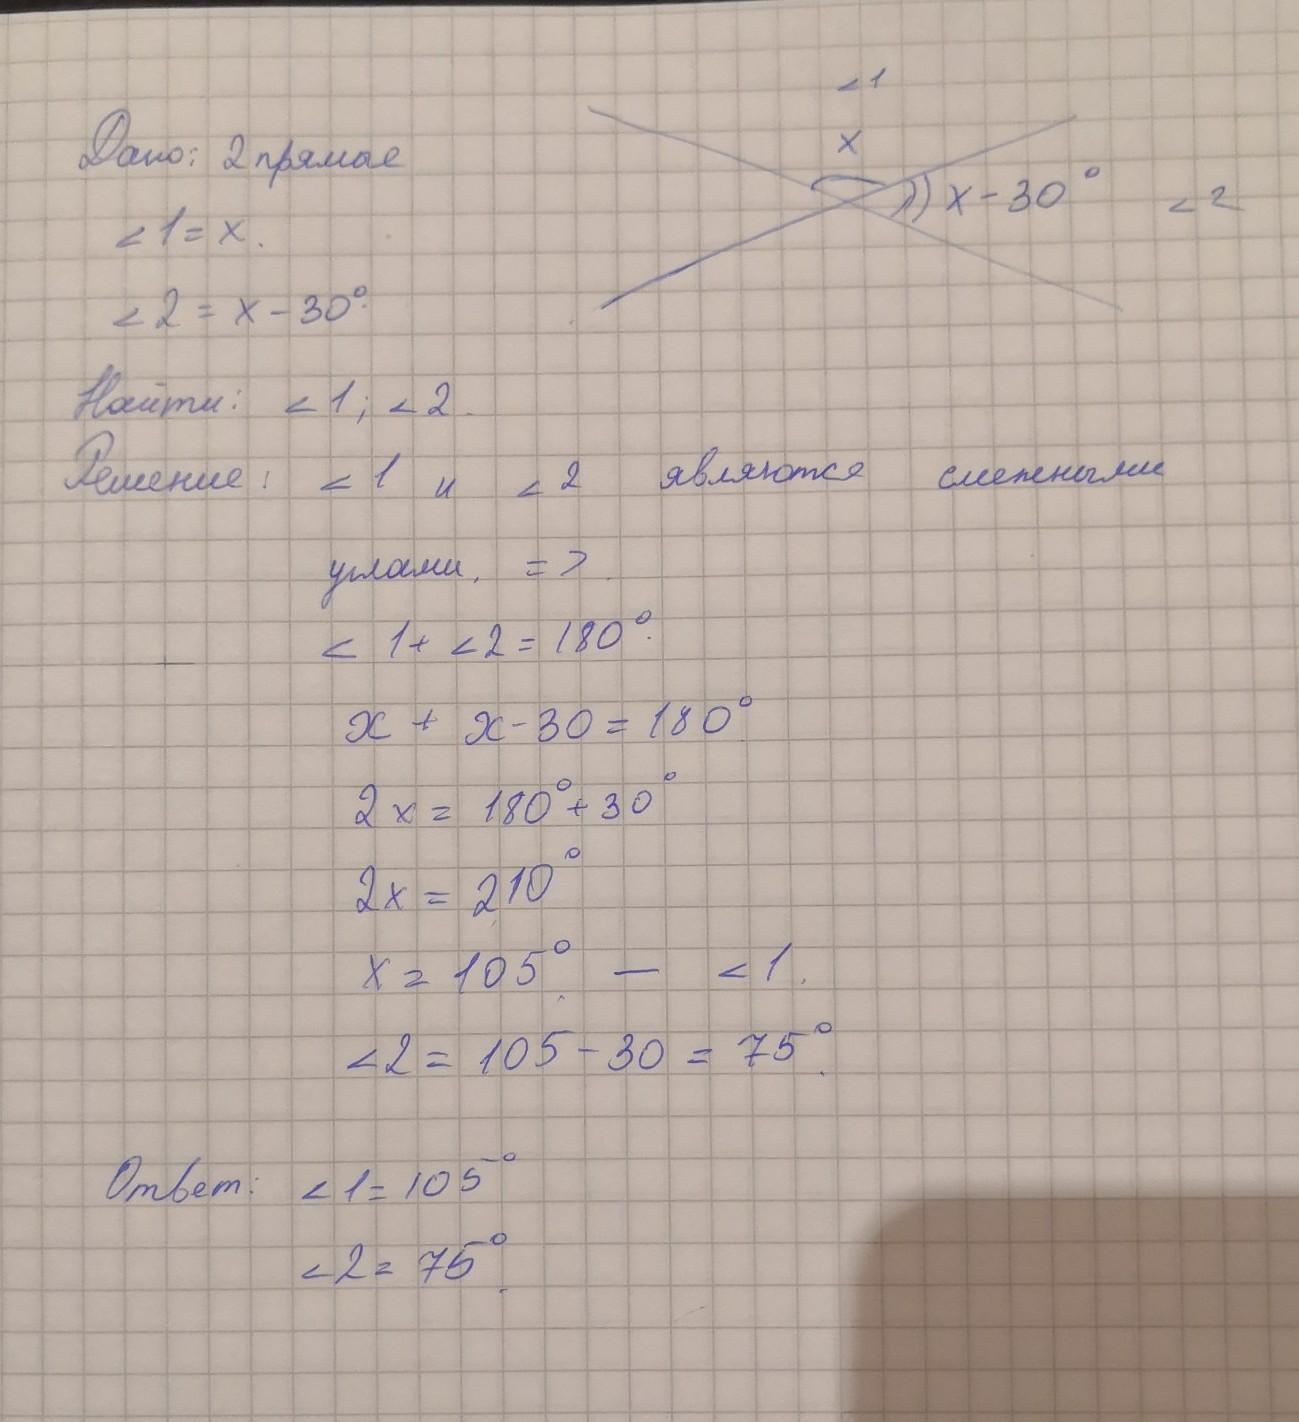 ∠1
Дано: 2 прямые
x
x - 30° ∠2
∠1 = x.
∠2 = x - 30°.
Найти: ∠1; ∠2.
Решение: ∠1 и ∠2 являются смежными
углами. =>.
∠1 + ∠2 = 180°.
x + x - 30 = 180°.
2x = 180° + 30°
2x = 210°
x = 105°. — ∠1.
∠2 = 105 - 30 = 75°.
Ответ: ∠1 = 105°
∠2 = 75°.